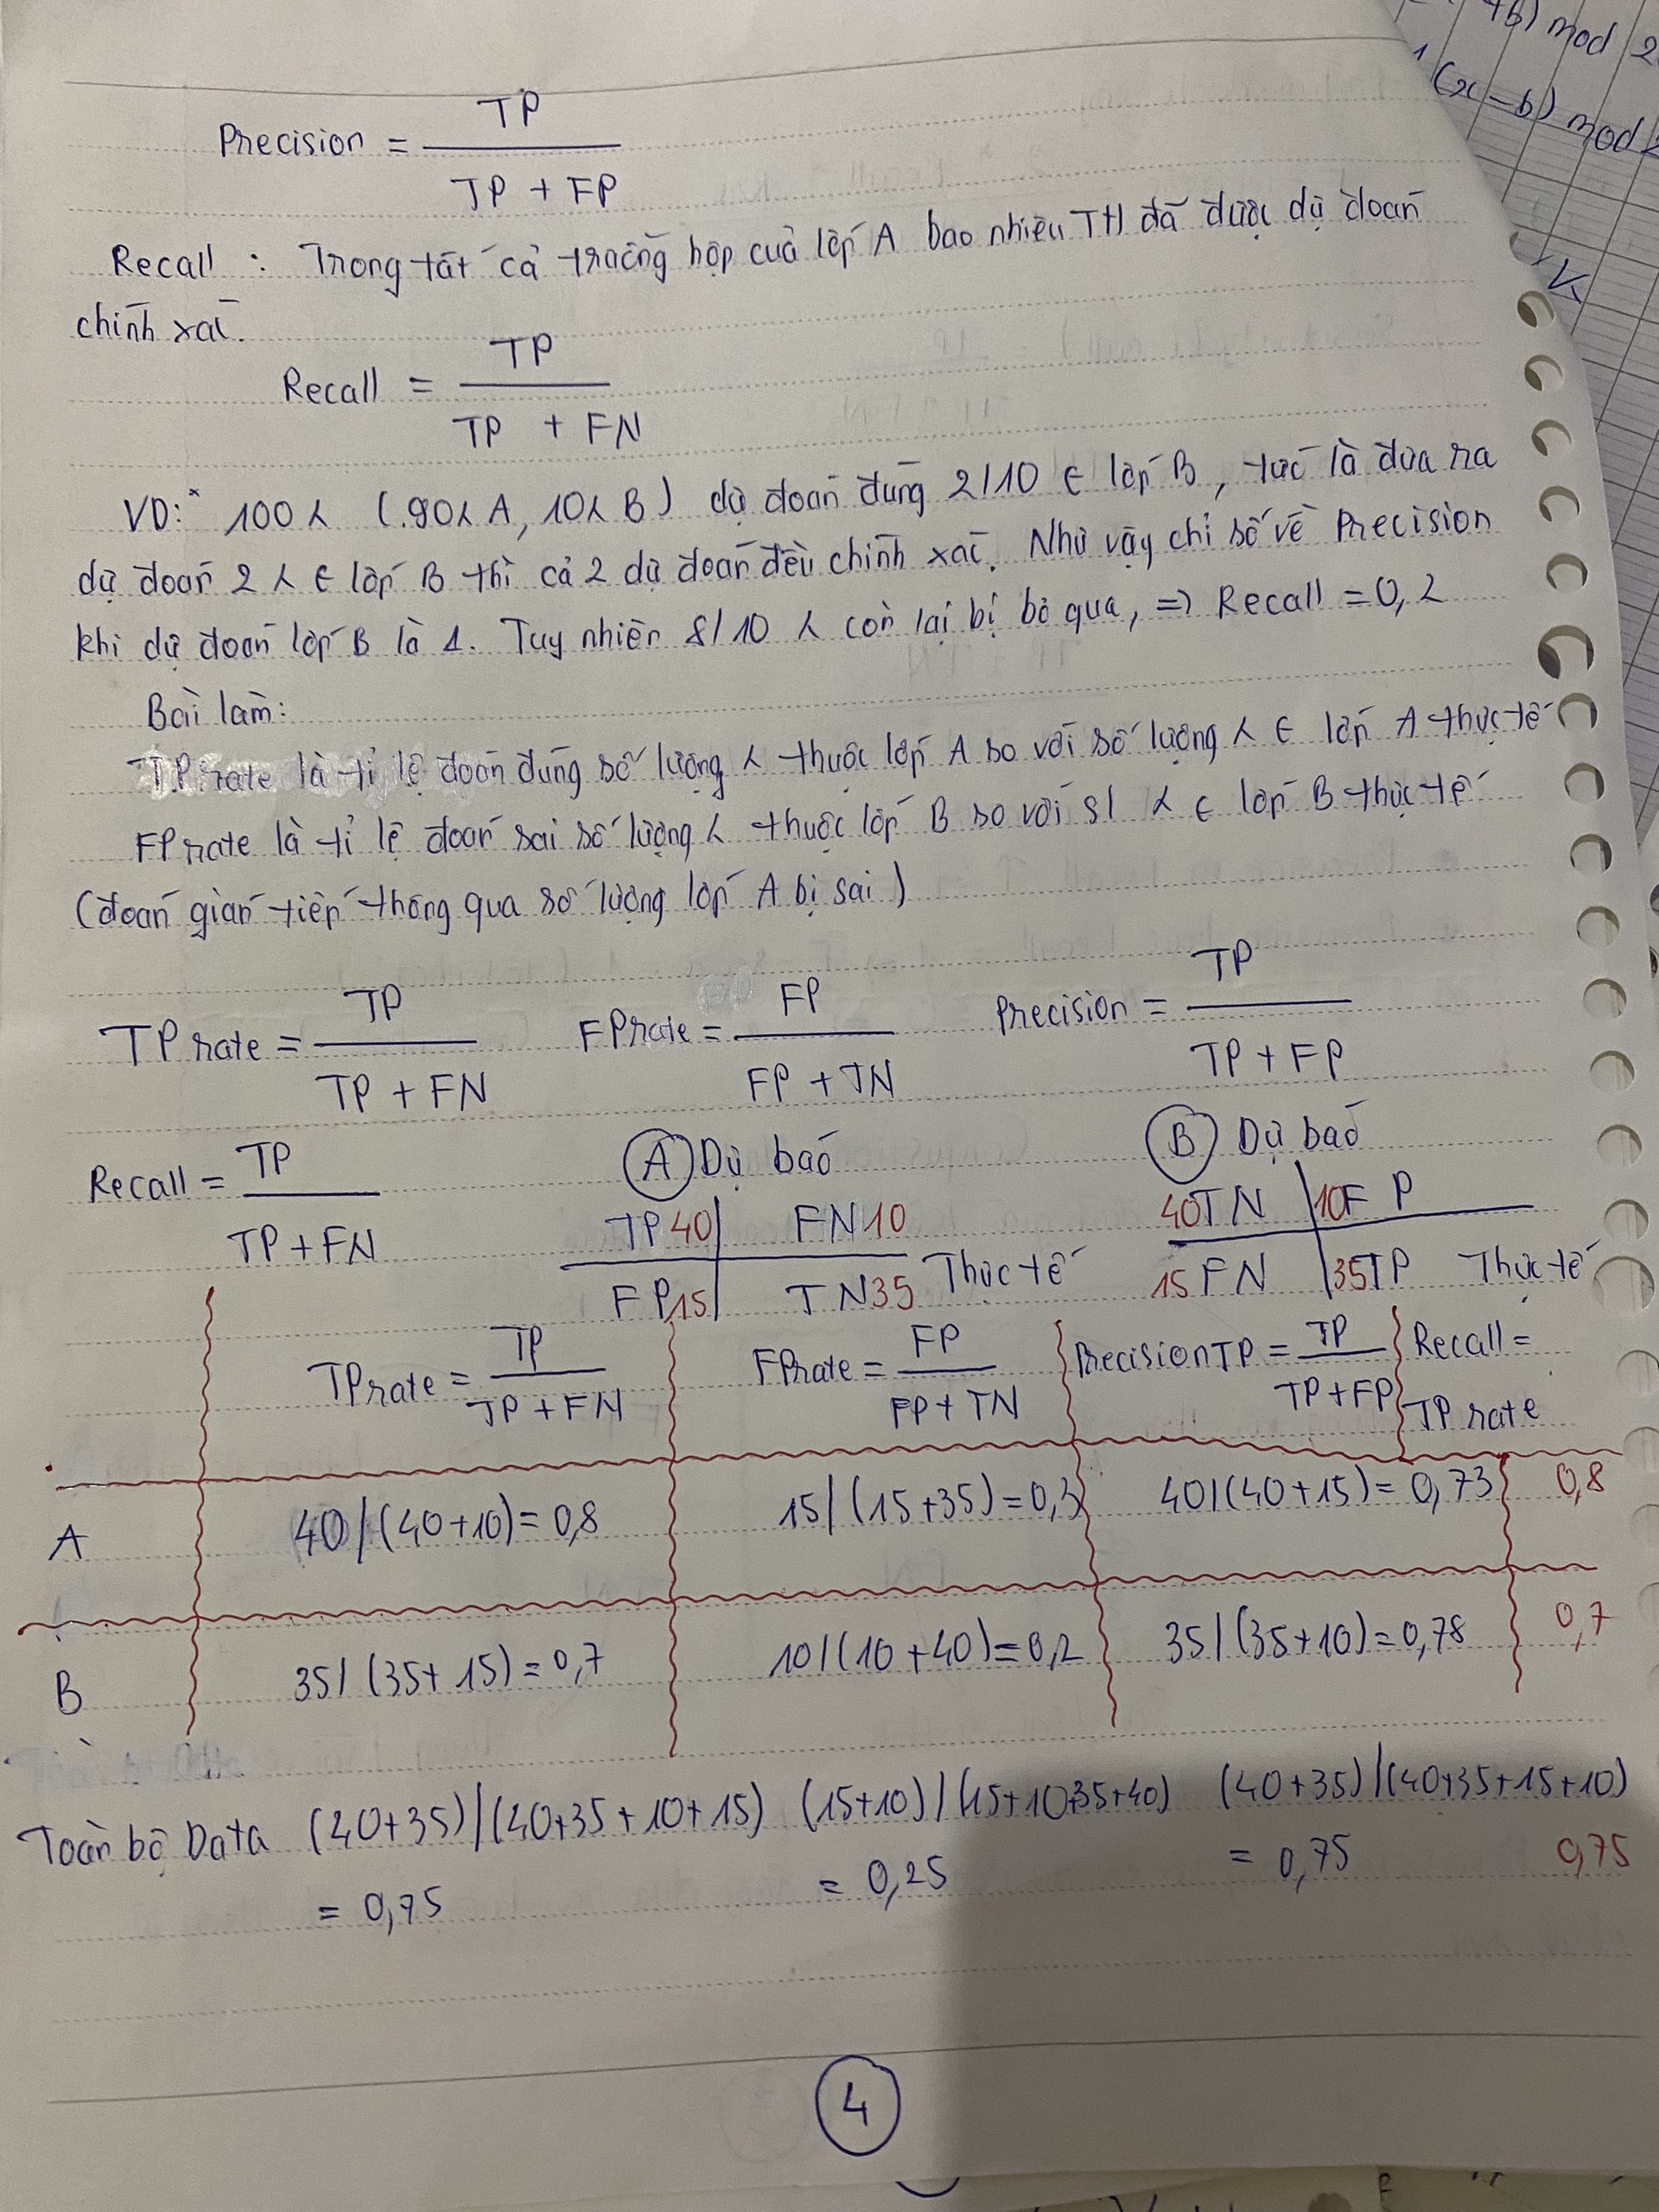 Precision = TP / (TP + FP)
Recall : Trong tất cả trường hợp của lớp A bao nhiêu TH đã được dự đoán
chính xác.
Recall = TP / (TP + FN)
VD: 100 λ (90λ A, 10λ B) dự đoán đúng 2/10 ∈ lớp B, tức là đưa ra
dự đoán 2 λ ∈ lớp B thì cả 2 dự đoán đều chính xác. Như vậy chỉ số về Precision
khi dự đoán lớp B là 1. Tuy nhiên 8/10 λ còn lại bị bỏ qua, => Recall = 0,2
Bài làm:
TP rate là tỉ lệ đoán đúng số lượng λ thuộc lớp A so với số lượng λ ∈ lớp A thực tế
FP rate là tỉ lệ đoán sai số lượng λ thuộc lớp B so với sl λ ∈ lớp B thực tế
(đoán gián tiếp thông qua số lượng lớp A bị sai)
TP rate = TP / (TP + FN) FP rate = FP / (FP + TN) Precision = TP / (TP + FP)
Recall = TP / (TP + FN)
A Dự báo B Dự báo
TP 40 | FN 10 40 TN | 10 F P
FP 15 | TN 35 Thực tế 15 FN | 35 TP Thực tế
TP rate = TP / (TP + FN) FP rate = FP / (FP + TN) Precision TP = TP / (TP + FP) Recall = TP rate
A 40/(40+10) = 0,8 15/(15+35) = 0,3 40/(40+15) = 0,73 0,8
B 35/(35+15) = 0,7 10/(10+40) = 0,2 35/(35+10) = 0,78 0,7
Toàn bộ Data (40+35)/(40+35+10+15) (15+10)/(15+10+35+40) (40+35)/(40+35+15+10)
= 0,75 = 0,25 = 0,75 0,75
4